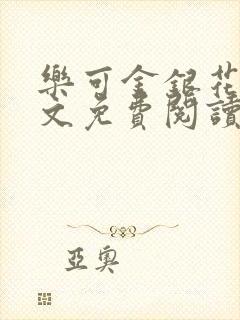 樂可金銀花
文免費閱讀
亞奧